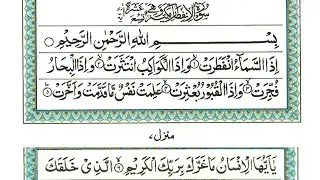 سُوْرَةُ الْاِنْفِطَارِ مَكِّيَّةٌ
بِسْمِ اللّٰهِ الرَّحْمٰنِ الرَّحِيْمِ
اِذَا السَّمَآءُ انْفَطَرَتْ ۱ وَاِذَا الْكَوَاكِبُ انْتَثَرَتْ ۲ وَاِذَا الْبِحَارُ
فُجِّرَتْ ۳ وَاِذَا الْقُبُوْرُ بُعْثِرَتْ ۴ عَلِمَتْ نَفْسٌ مَّا قَدَّمَتْ وَاَخَّرَتْ ۵
منزل ۷
يٰۤاَيُّهَا الْاِنْسَانُ مَا غَرَّكَ بِرَبِّكَ الْكَرِيْمِ ۶ الَّذِيْ خَلَقَكَ